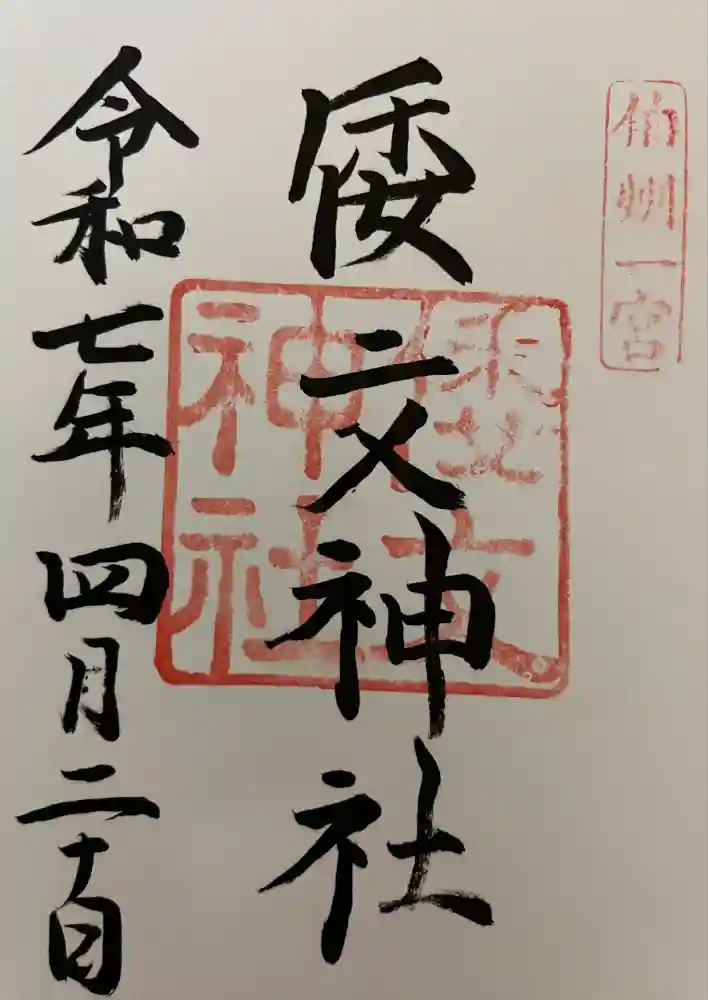 伯州一宮
倭文神社
倭文神社
令和七年四月二十日